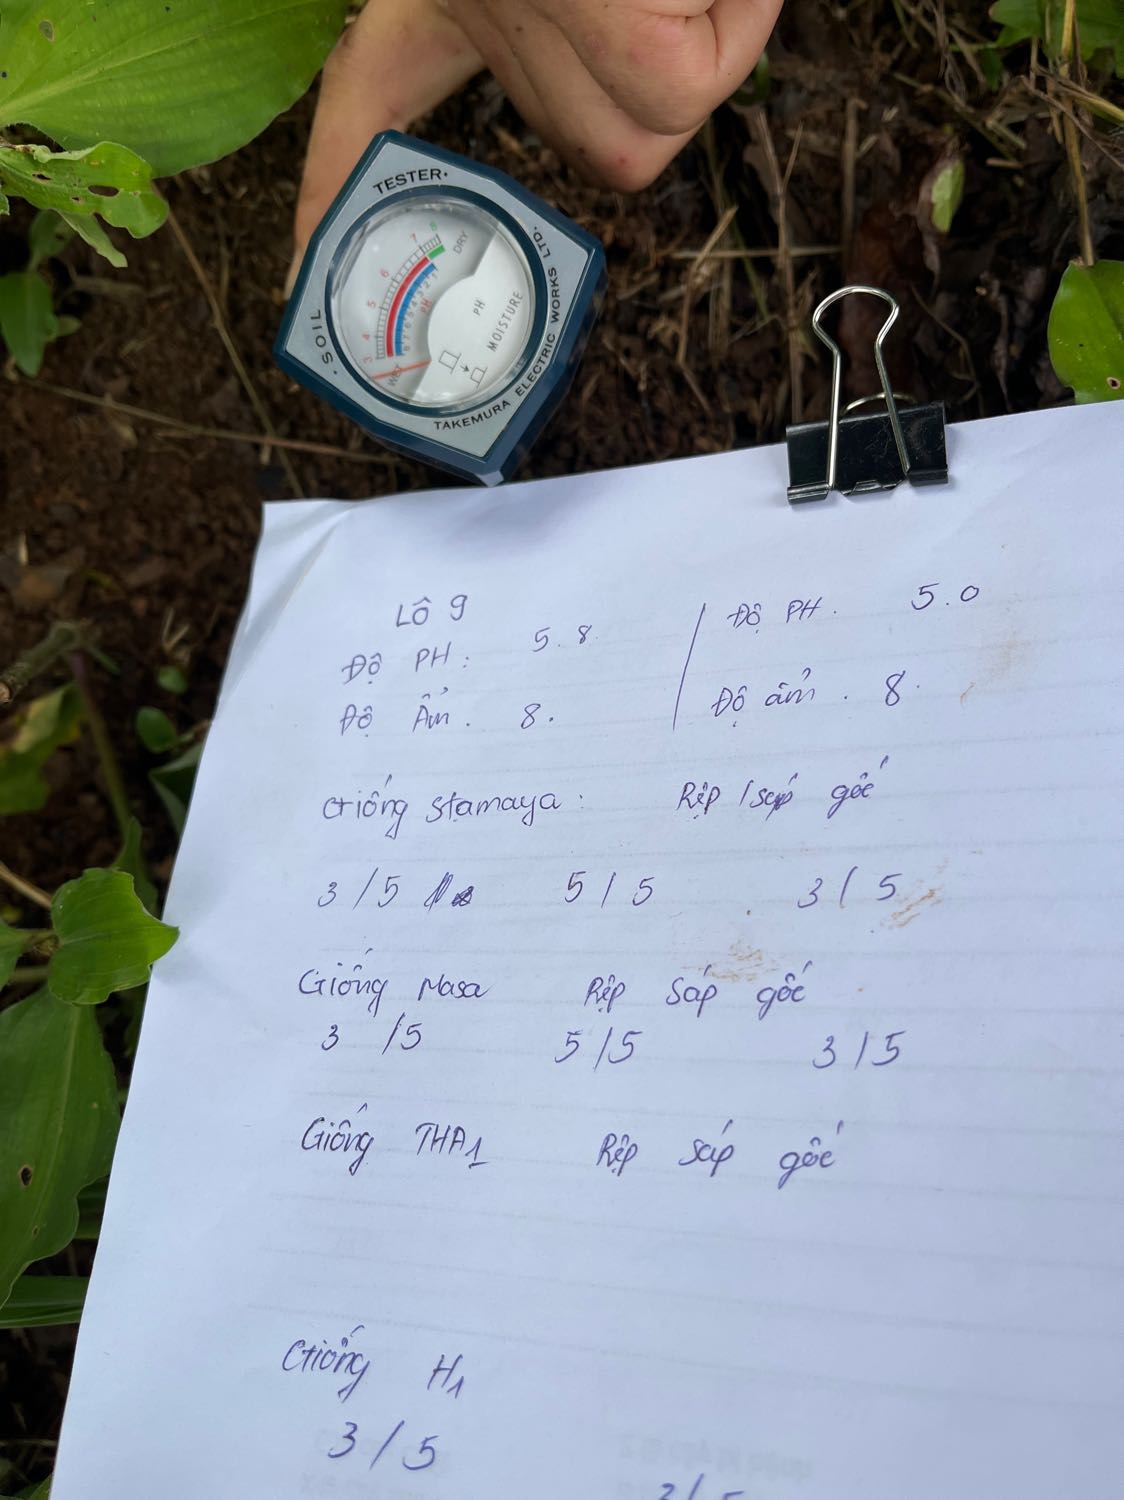 SOIL TESTER
TAKEMURA ELECTRIC WORKS LTD.
DRY
WET
PH
PH
MOISTURE
3 4 5 6 7 8
8 7 6 5 4 3 2 1
Lô 9
Độ PH : 5.8 | Độ PH . 5.0
Độ Ẩm . 8. | Độ ẩm . 8.
Giống Stamaya : Rệp sáp gốc
3/5 5/5 3/5
Giống Masa Rệp sáp gốc
3/5 5/5 3/5
Giống THA1 Rệp sáp gốc
Giống H1
3/5
3/5